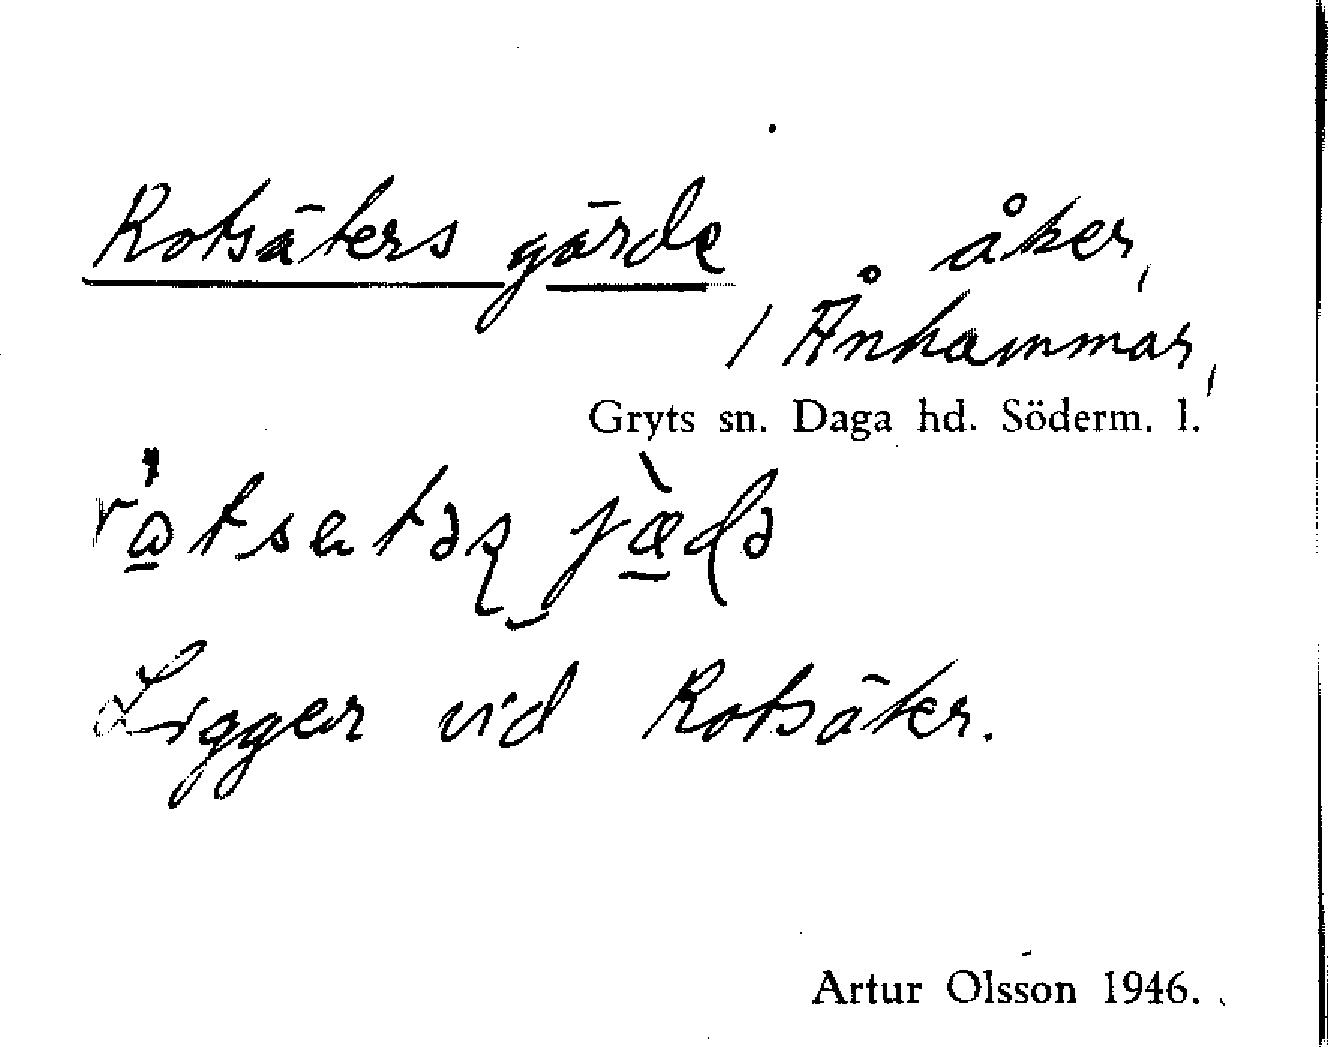 Rotsäters gärde åker,
/ Ånhammar,
Gryts sn. Daga hd. Söderm. l.
Ligger vid Rotsäter.
Artur Olsson 1946.